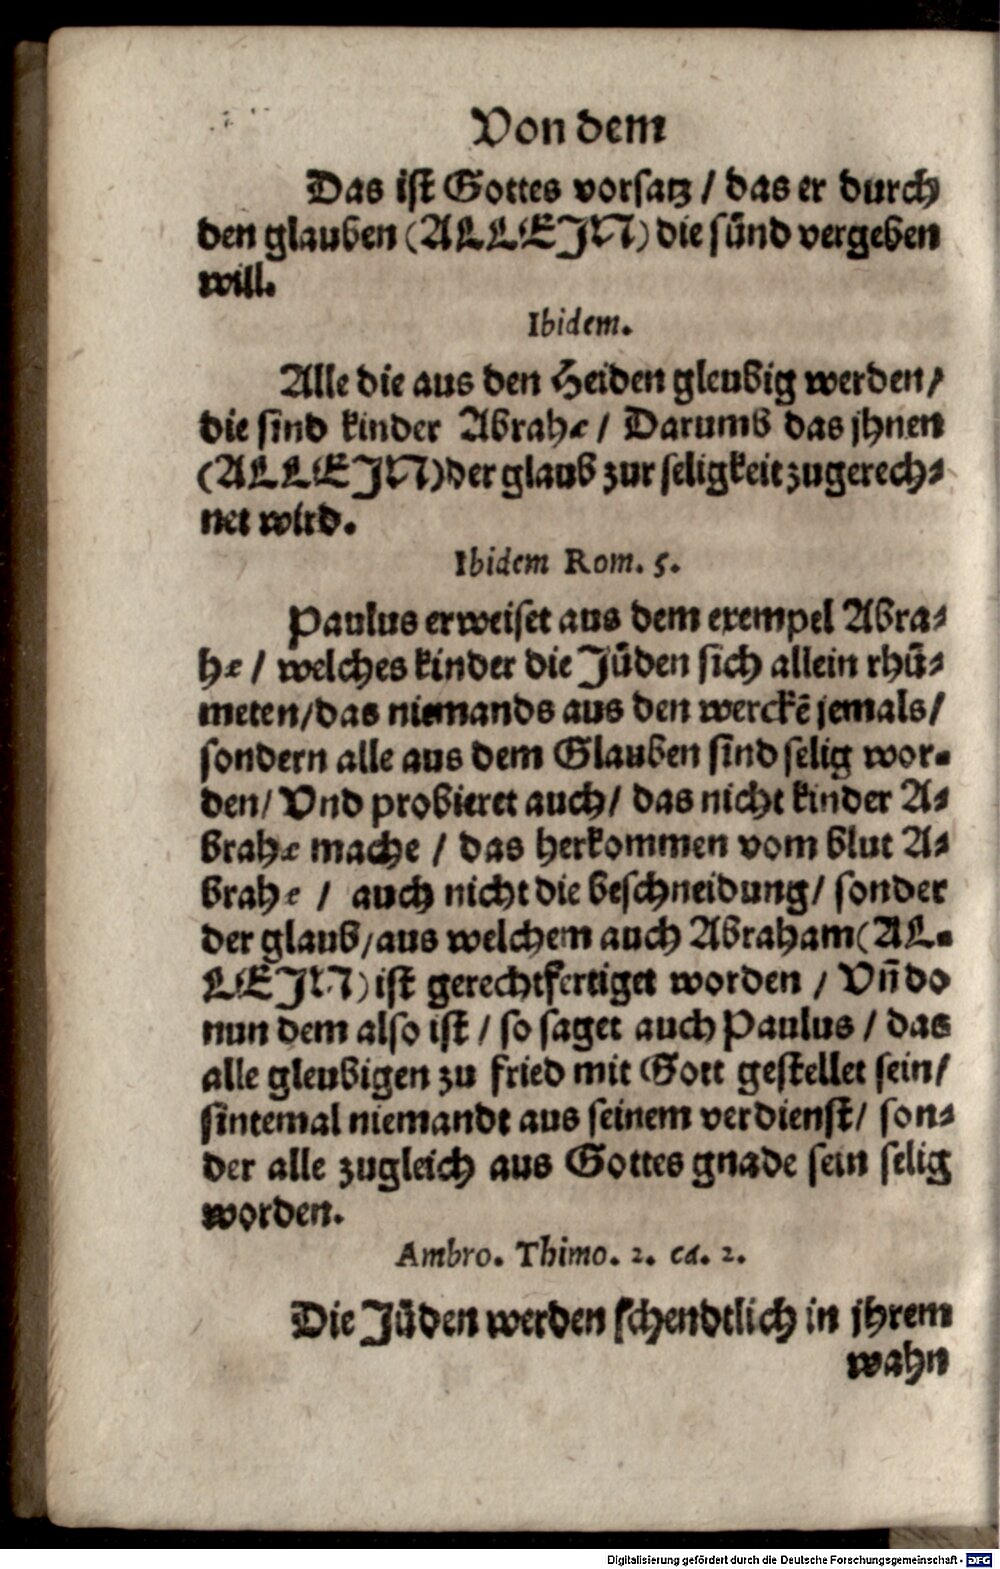 Von dem
Das ist Gottes vorsatz / das er durch
den glauben (ALLEIN) die sünd vergeben
will.
Ibidem.
Alle die aus den Heiden gleubig werden /
die sind kinder Abrahę / Darumb das jhnen
(ALLEIN) der glaub zur seligkeit zugerech⸗
net wird.
Ibidem Rom. 5.
Paulus erweiset aus dem exempel Abra⸗
hę / welches kinder die Jüden sich allein rhü⸗
meten / das niemands aus den werckē jemals /
sondern alle aus dem Glauben sind selig wor⸗
den / Vnd probieret auch / das nicht kinder A⸗
brahę mache / das herkommen vom blut A⸗
brahę / auch nicht die beschneidung / sonder
der glaub / aus welchem auch Abraham (AL⸗
LEIN) ist gerechtfertiget worden / Vn̄ do
nun dem also ist / so saget auch Paulus / das
alle gleubigen zu fried mit Gott gestellet sein /
sintemal niemandt aus seinem verdienst / son⸗
der alle zugleich aus Gottes gnade sein selig
worden.
Ambro. Thimo. 2. ca. 2.
Die Jüden werden schendtlich in jhrem
wahn
Digitalisierung gefördert durch die Deutsche Forschungsgemeinschaft - DFG